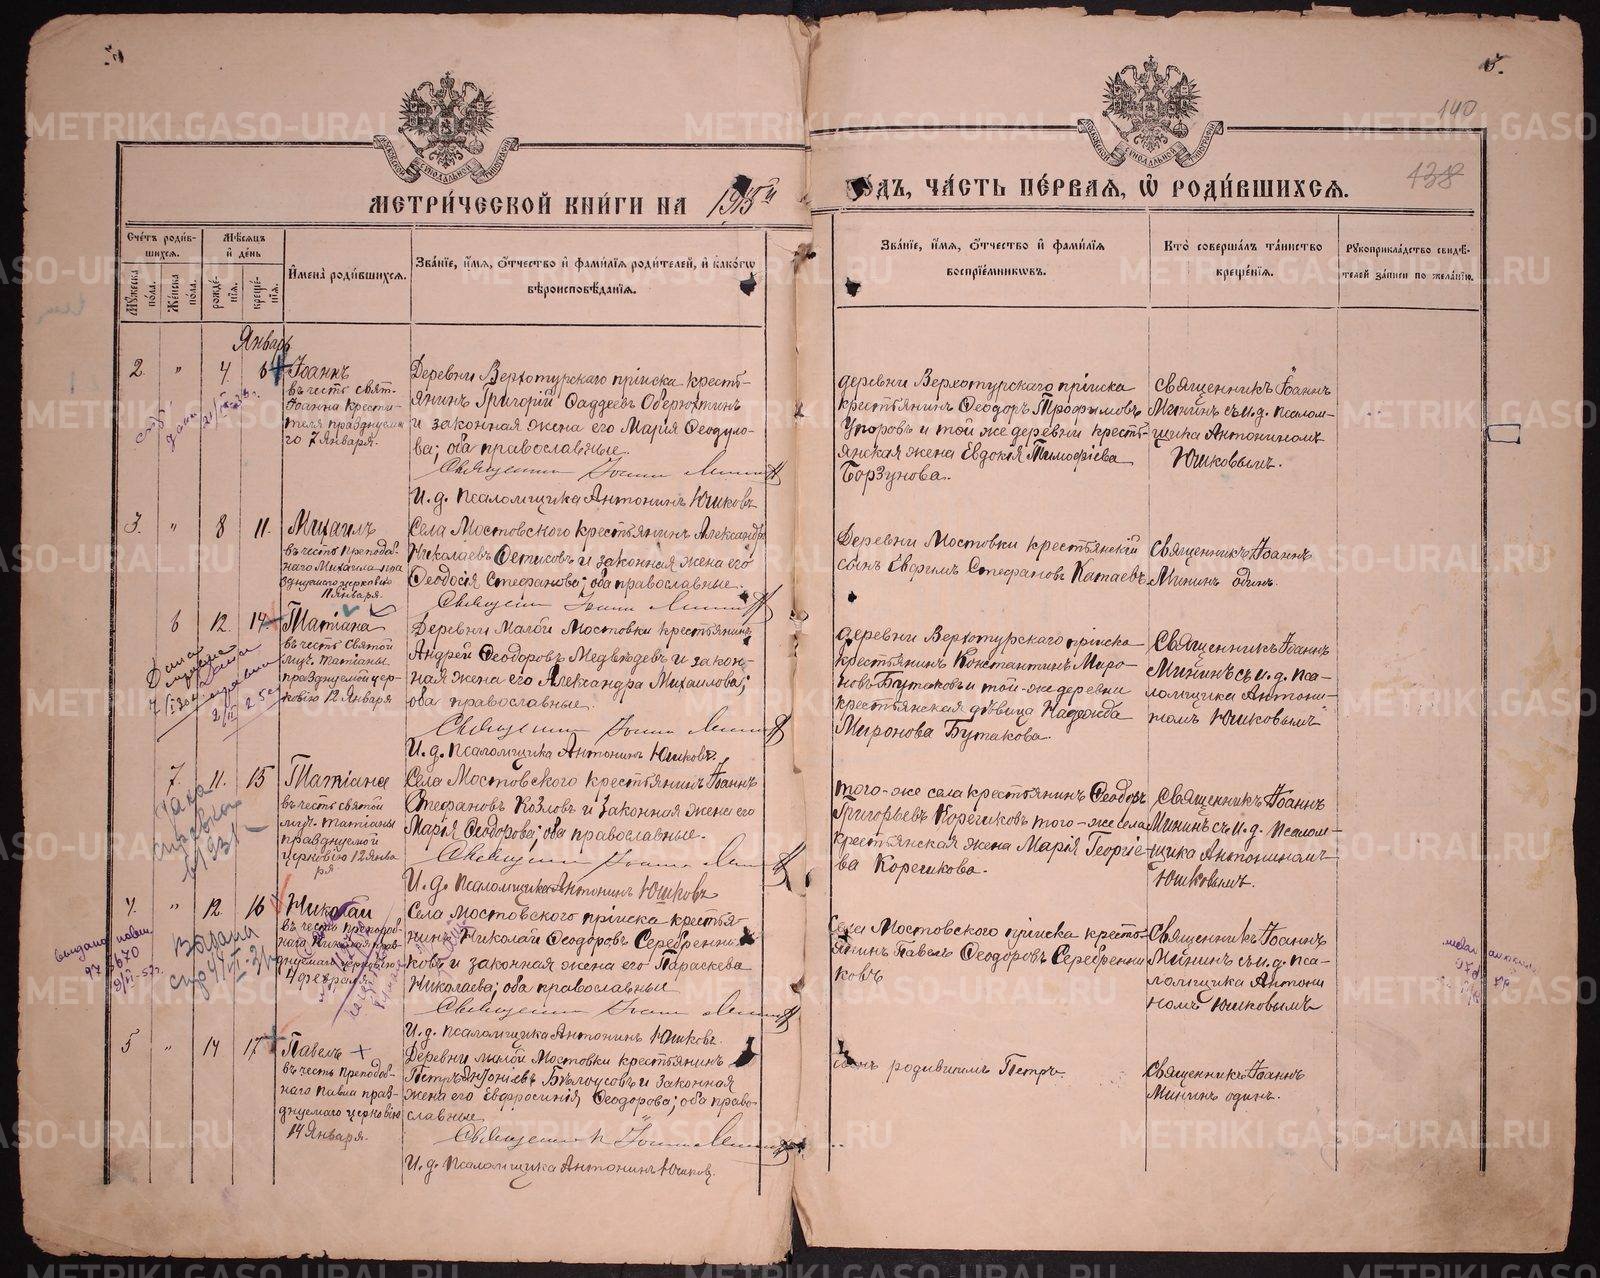 140
138
МЕТРИ́ЧЕСКОЙ КНИ́ГИ НА 1915й
ГОДЪ, ЧА́СТЬ ПЕ́РВАЯ, Ѡ РОДИ́ВШИХСЯ.
Сче́тъ роди́в-
шихся.
Му́жеска пола.
Же́нска пола.
Мѣ́сяцъ
и де́нь
рожде́-
нія.
креще́-
нія.
И́мена роди́вшихся.
Зва́ніе, и́мя, о́тчество и фами́лія роди́телей, и како́гѡ
вѣроисповѣ́данія.
Зва́ніе, и́мя, о́тчество и фами́лія
воспріе́мниковъ.
Кто̀ соверша́лъ та́инство
креще́нія.
Рукоприкла́дство свидѣ́-
телей за́писи по жела́нію.
Январь
2. " 4. 6
Іоаннъ
въ честь свят.
Іоанна Крести-
теля празднуема-
го 7 Января.
Деревни Верхотурскаго пріиска кресть-
янинъ Григорій Фаддеевъ Оберюхтинъ
и законная жена его Марія Ѳеодуло-
ва; оба православные.
Священникъ Іоаннъ Мининъ
И. д. Псаломщика Антонинъ Юшковъ
деревни Верхотурскаго пріиска
крестьянинъ Ѳеодоръ Трофимовъ
Упоровъ и той же деревни кресть-
янская жена Евдокія Тимофіева
Борзунова.
Священникъ Іоаннъ
Мининъ съ и. д. псалом-
щика Антониномъ
Юшковымъ.
3. " 8 11.
Михаилъ
въ честь преподоб-
наго Михаила пра-
зднуемаго церковію
11 Января.
Села Мостовского крестьянинъ Александръ
Николаевъ Ѳетисовъ и законная жена его
Ѳеодосія Стефанова; оба православные.
Священникъ Іоаннъ Мининъ
Деревни Мостовки крестьянскій
сынъ Ефремъ Стефановъ Катаевъ.
Священникъ Іоаннъ
Мининъ одинъ.
6 12. 14
Татіана
въ честь Святой
муч. Татіаны
празднуемой цер-
ковію 12 Января
Деревни Малой Мостовки крестьянинъ
Андрей Ѳеодоровъ Медвѣдевъ и закон-
ная жена его Александра Михаилова;
оба православные.
Священникъ Іоаннъ Мининъ
И. д. Псаломщика Антонинъ Юшковъ.
деревни Верхотурскаго пріиска
крестьянинъ Константинъ Миро-
новъ Бутаковъ и той-же деревни
крестьянская дѣвица Надежда
Миронова Бутакова.
Священникъ Іоаннъ
Мининъ съ и. д. пса-
ломщика Антони-
номъ Юшковымъ
7. 11. 15
Татіана
въ честь святой
муч. Татіаны
празднуемой
церковію 12 Янва
ря
Села Мостовского крестьянинъ Іоаннъ
Стефановъ Козловъ и законная жена его
Марія Ѳеодорова; оба православные.
Священникъ Іоаннъ Мининъ
И. д. Псаломщика Антонинъ Юшковъ
того-же села крестьянинъ Ѳеодоръ
Григорьевъ Корешковъ того-же села
крестьянская жена Марія Георгіе-
ва Корешкова.
Священникъ Іоаннъ
Мининъ съ и. д. псалом-
щика Антониномъ
Юшковымъ.
4. " 12. 16
Николай
въ честь преподоб-
наго Николая праз-
днуемаго церковію
4 февраля.
Села Мостовского пріиска крестья-
нинъ Николай Ѳеодоровъ Серебренни-
ковъ и законная жена его Параскева
Николаева; оба православные
Священникъ Іоаннъ Мининъ
И. д. Псаломщика Антонинъ Юшковъ.
Села Мостовского пріиска кресть-
янинъ Павелъ Ѳеодоровъ Серебренни-
ковъ
Священникъ Іоаннъ
Мининъ съ и. д. пса-
ломщика Антони
номъ Юшковымъ
5 " 14 17
Павелъ
въ честь преподоб-
наго Павла праз-
днуемаго церковію
14 Января.
Деревни малой Мостовки крестьянинъ
Петръ Антоніевъ Бѣлоусовъ и законная
жена его Евфросинія Ѳеодорова; оба право-
славные.
Священникъ Іоаннъ Мининъ
И. д. Псаломщика Антонинъ Юшковъ.
родившимъ Петръ.
Священникъ Іоаннъ
Мининъ одинъ.
METRIKI.GASO-URAL.RU